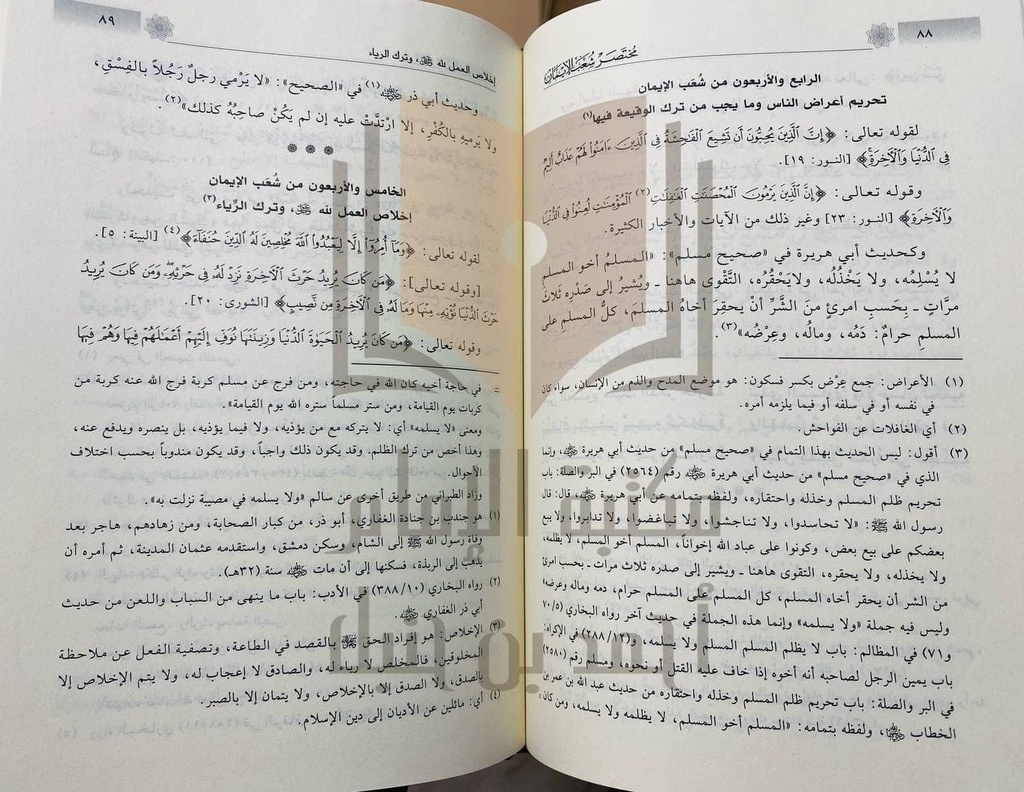 ٨٨
مُختَصَرْ شُعَبُ الإِيمَان
الرابع والأربعون من شُعَب الإيمان
تحريم أعراض الناس وما يجب من ترك الوقيعة فيها(١)
لقوله تعالى: ﴿إِنَّ الَّذِينَ يُحِبُّونَ أَن تَشِيعَ الْفَاحِشَةُ فِي الَّذِينَ ءَامَنُوا لَهُمْ عَذَابٌ أَلِيمٌ
فِي الدُّنْيَا وَالْآخِرَةِ﴾ [النـور: ١٩].
وقوله تعالى: ﴿إِنَّ الَّذِينَ يَرْمُونَ الْمُحْصَنَاتِ الْغَافِلَاتِ(٢) الْمُؤْمِنَاتِ لُعِنُوا فِي الدُّنْيَا
وَالْآخِرَةِ﴾ [النور: ٢٣] وغير ذلك من الآيات والأخبار الكثيرة.
وكحديث أبي هريرة في «صحيح مسلم»: «المسلمُ أخو المسلمِ
لا يُسْلِمُه، ولا يَخْذُلُه، ولا يَحْقُرُه، التَّقْوى هاهنا ـ ويُشيرُ إلى صَدْرِه ثلاثَ
مرَّاتٍ ـ بِحَسبِ امرئٍ منَ الشَّرِّ أنْ يحقِرَ أخاهُ المسلمَ، كلُّ المسلمِ على
المسلمِ حرامٌ: دَمُه، ومالُه، وعِرْضُه»(٣).
(١) الأعراض: جمع عِرْض بكسر فسكون: هو موضع المدح والذم من الإنسان، سواء كان
في نفسه أو في سلفه أو فيما يلزمه أمره.
(٢) أي الغافلات عن الفواحش.
(٣) أقول: ليس الحديث بهذا التمام في «صحيح مسلم» من حديث أبي هريرة ﷺ، وإنما
الذي في «صحيح مسلم» من حديث أبي هريرة رقم (٢٥٦٤) في البر والصلة: باب
تحريم ظلم المسلم وخذله واحتقاره، ولفظه بتمامه عن أبي هريرة، قال: قال
رسول الله ﷺ: «لا تحاسدوا، ولا تناجشوا، ولا تباغضوا، ولا تدابروا، ولا يبع
بعضكم على بيع بعض، وكونوا على عباد الله إخواناً، المسلم أخو المسلم، لا يظلمه،
ولا يخذله، ولا يحقره، التقوى هاهنا ـ ويشير إلى صدره ثلاث مرات ـ بحسب امرئ
من الشر أن يحقر أخاه المسلم، كل المسلم على المسلم حرام، دمه وماله وعرضه»
وليس فيه جملة «ولا يسلمه» وإنما هذه الجملة في حديث آخر رواه البخاري (٧٠/٥
و٧١) في المظالم: باب لا يظلم المسلم المسلم ولا يسلمه، و(٢٨٨/١٢) في الإكراه:
باب يمين الرجل لصاحبه أنه أخوه إذا خاف عليه القتل أو نحوه، ومسلم رقم (٢٥٨٠)
في البر والصلة: باب تحريم ظلم المسلم وخذله واحتقاره من حديث عبد الله بن عمر بن
الخطاب، ولفظه بتمامه: «المسلم أخو المسلم، لا يظلمه ولا يسلمه، ومن كان =
٨٩
إخلاص العمل لله ﷻ، وترك الرياء
وحديث أبي ذر(١) في «الصحيح»: «لا يَرْمي رجلٌ رَجُلاً بالفِسْقِ،
ولا يَرميهِ بالكُفْرِ، إلا ارْتدَّتْ عليه إن لم يَكُنْ صاحبُهُ كذلك»(٢)
* * *
الخامس والأربعون من شُعَب الإيمان
إخلاص العمل لله ﷻ، وترك الرِّياء(٣)
لقوله تعالى: ﴿وَمَا أُمِرُوا إِلَّا لِيَعْبُدُوا اللَّهَ مُخْلِصِينَ لَهُ الدِّينَ حُنَفَاءَ﴾(٤) [البينة: ٥].
[وقوله تعالى]: ﴿مَن كَانَ يُرِيدُ حَرْثَ الْآخِرَةِ نَزِدْ لَهُ فِي حَرْثِهِ وَمَن كَانَ يُرِيدُ
حَرْثَ الدُّنْيَا نُؤْتِهِ مِنْهَا وَمَا لَهُ فِي الْآخِرَةِ مِن نَّصِيبٍ﴾ [الشورى: ٢٠].
وقوله تعالى: ﴿مَن كَانَ يُرِيدُ الْحَيَاةَ الدُّنْيَا وَزِينَتَهَا نُوَفِّ إِلَيْهِمْ أَعْمَالَهُمْ فِيهَا وَهُمْ فِيهَا
= في حاجة أخيه كان الله في حاجته، ومن فرج عن مسلم كربة فرج الله عنه كربة من
كربات يوم القيامة، ومن ستر مسلماً ستره الله يوم القيامة».
ومعنى «لا يسلمه» أي: لا يتركه مع من يؤذيه، ولا فيما يؤذيه، بل ينصره ويدفع عنه،
وهذا أخص من ترك الظلم، وقد يكون ذلك واجباً، وقد يكون مندوباً بحسب اختلاف
الأحوال.
وزاد الطبراني من طريق أخرى عن سالم «ولا يسلمه في مصيبة نزلت به».
(١) هو جندب بن جنادة الغفاري، أبو ذر، من كبار الصحابة، ومن زهادهم، هاجر بعد
وفاة رسول الله ﷺ إلى الشام، وسكن دمشق، واستقدمه عثمان المدينة، ثم أمره أن
يذهب إلى الربذة، فسكنها إلى أن مات سنة (٣٢هـ).
(٢) رواه البخاري (٣٨٨/١٠) في الأدب: باب ما ينهى من السباب واللعن من حديث
أبي ذر الغفاري.
(٣) الإخلاص: هو إفراد الحق ﷻ بالقصد في الطاعة، وتصفية الفعل عن ملاحظة
المخلوقين، فالمخلص لا رياء له، والصادق لا إعجاب له، ولا يتم الإخلاص إلا
بالصدق، ولا الصدق إلا بالإخلاص، ولا يتمان إلا بالصبر.
(٤) أي: مائلين عن الأديان إلى دين الإسلام.
مكتبة الإمام
أحمد بن حنبل